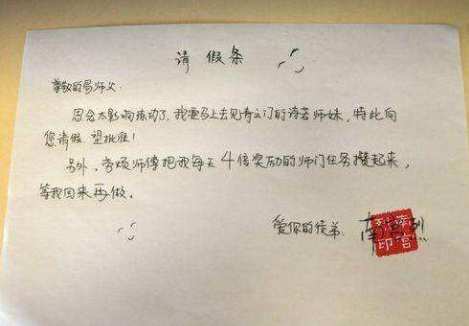 请假条
尊敬的易师父：
思念太影响拣动了，我要马上去见青云门的诸若师妹，特此向
您请假，望批准！
另外，劳烦师傅把我每天4倍奖励的师门任务攒起来，
等我回来再做。
爱你的徒弟：南宫烈
南宫烈印